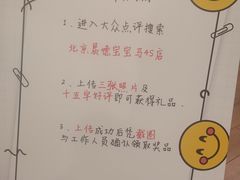 1、进入大众点评搜索
北京晨德宝宝马4S店
2、上传三张照片及
十五字好评即可获得礼品.
3、上传成功后凭截图
与工作人员确认领取奖品